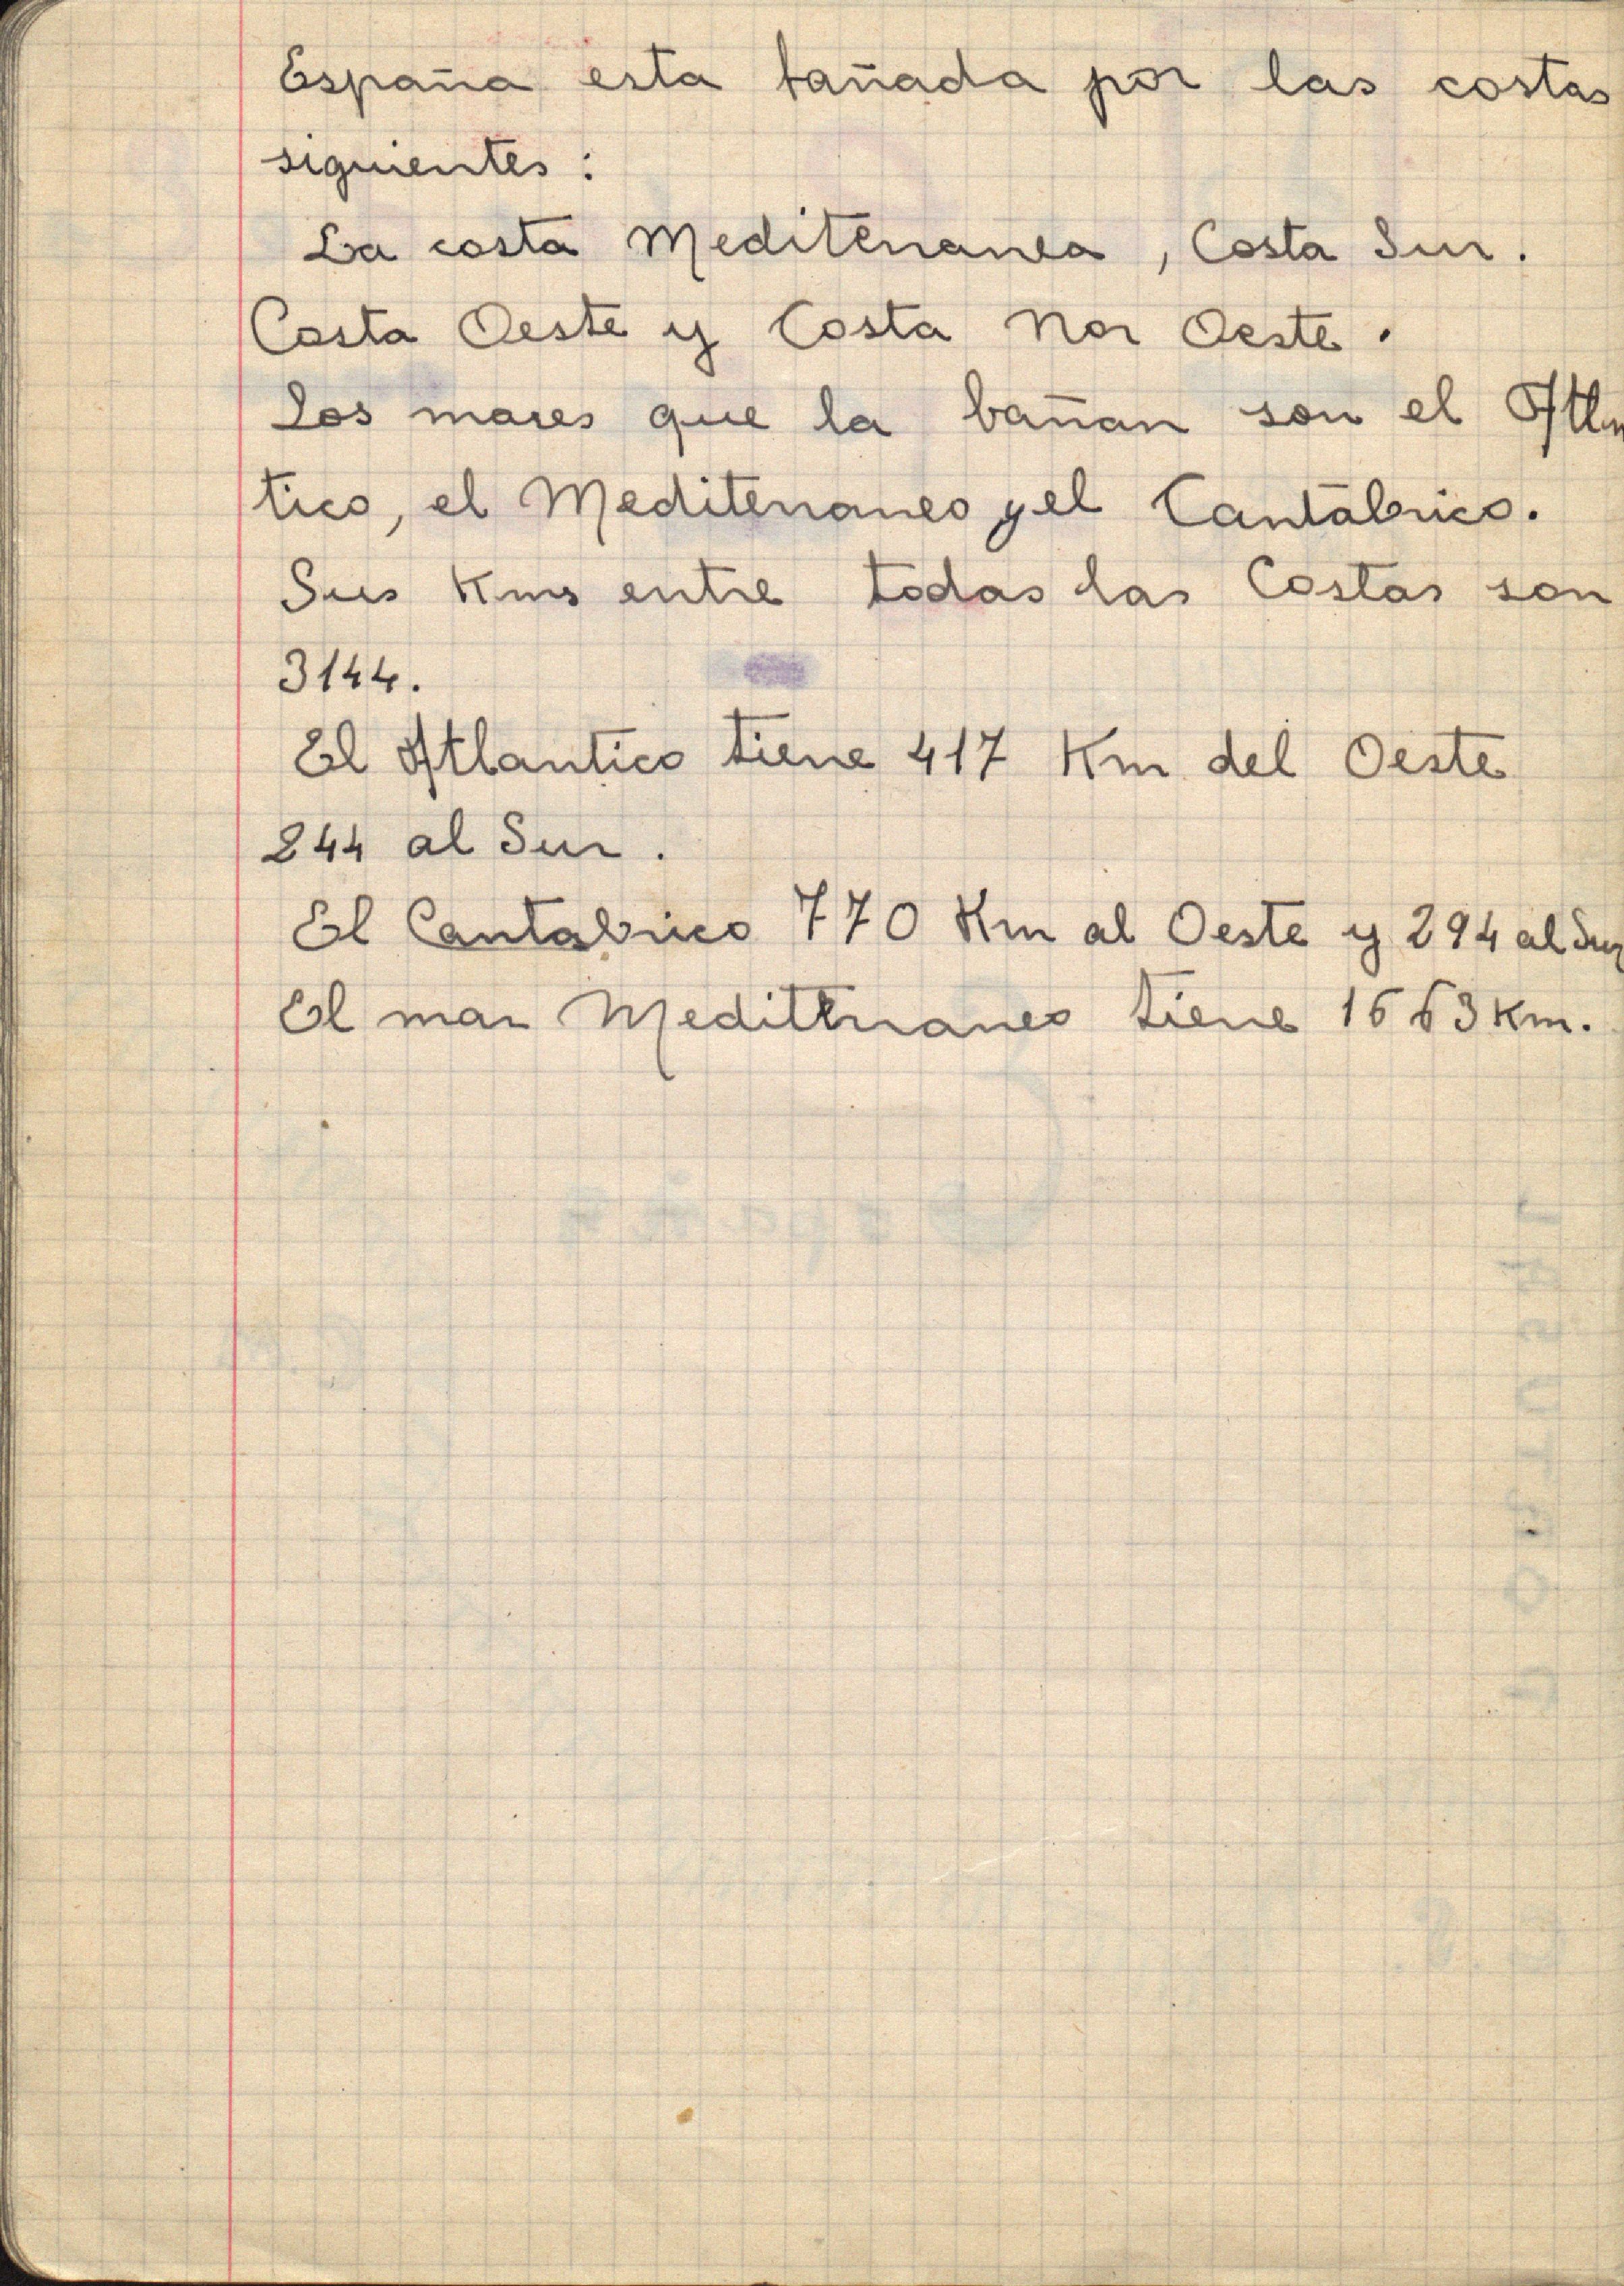 España esta bañada por las costas
siguientes :
La costa Mediterranea , Costa Sur .
Costa Oeste y Costa Nor Oeste .
Los mares que la bañan son el Atln
tico, el Mediterraneo y el Cantábrico.
Sus Kms entre todas las Costas son
3144.
El Atlantico tiene 417 Km del Oeste
244 al Sur .
El Cantabrico 770 Km al Oeste y 294 al Sur
El mar Mediterraneo tiene 1663 Km.